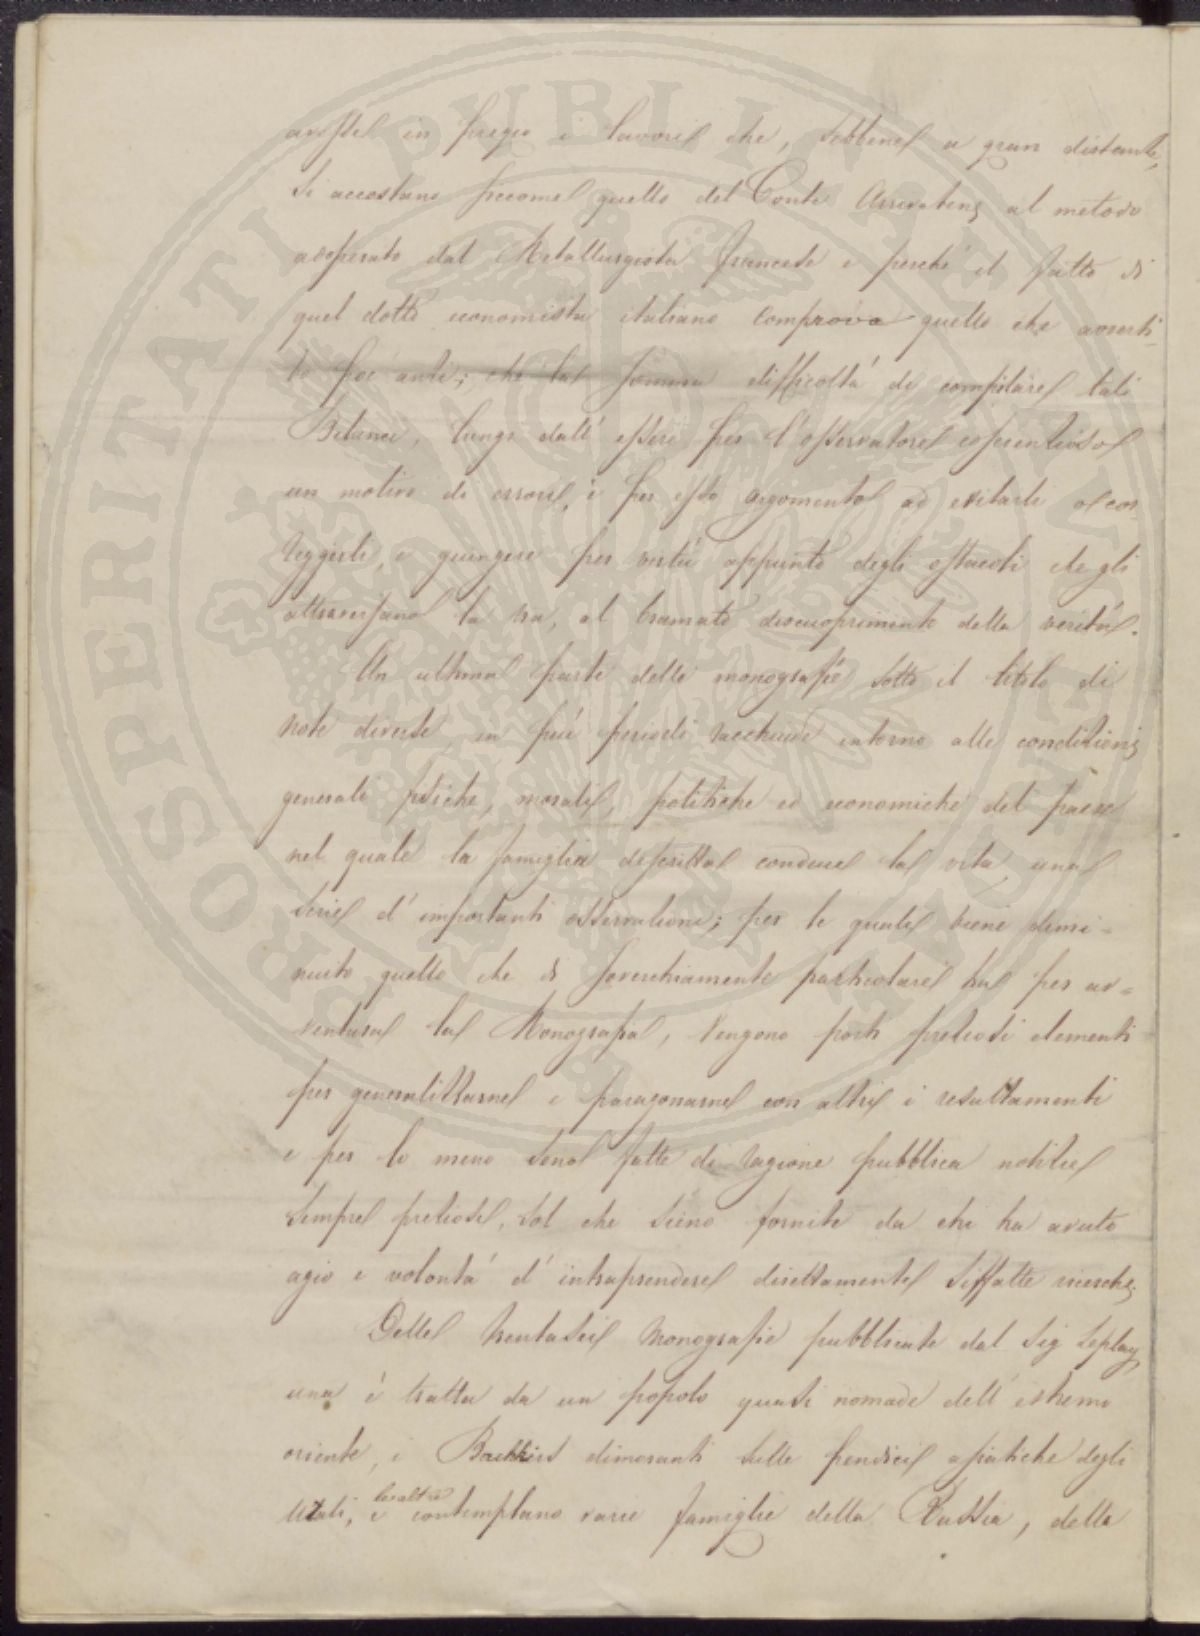 avessi in pregio i lavori che, sebbene a gran distanza,
si accostano siccome quello del Conte Arrivabene al metodo
adoperato dal Metallurgista francese e perché il fatto di
quel dotto economista italiano comprova quello che avverti-
to poc'anzi; che la somma difficoltà di compilare tali
Bilanci, lungi dall'essere per l'osservatore coscienzioso
un motivo di errori, è per esso argomento ad evitarli o cor-
reggerli, e giungere per virtù appunto degli ostacoli che gli
attraversano la via, al bramato discuoprimento della verità.
Un ultima parte delle monografie sotto il titolo di
note diverse, in più periodi racchiude intorno alle condizioni
generali fisiche, morali, politiche ed economiche del paese
nel quale la famiglia descritta conduce la vita una
serie d'importanti osservazioni; per le quali viene dimi-
nuito quello che di soverchiamente particolare ha per av-
ventura la Monografia, vengono porti preziosi elementi
per generalizzarne e paragonarne con altri i resultamenti
e per lo meno sono fatte di ragione pubblica notizie
sempre preziose, sol che sieno fornite da chi ha avuto
agio e volontà d'intraprendere direttamente siffatte ricerche.
Delle trentasei Monografie pubblicate dal Sig Leplay,
una è tratta da un popolo quasi nomade dell'estremo
oriente, i Bachkirs dimoranti sulle pendici asiatiche degli
Urali, le altre contemplano varie famiglie della Russia, della